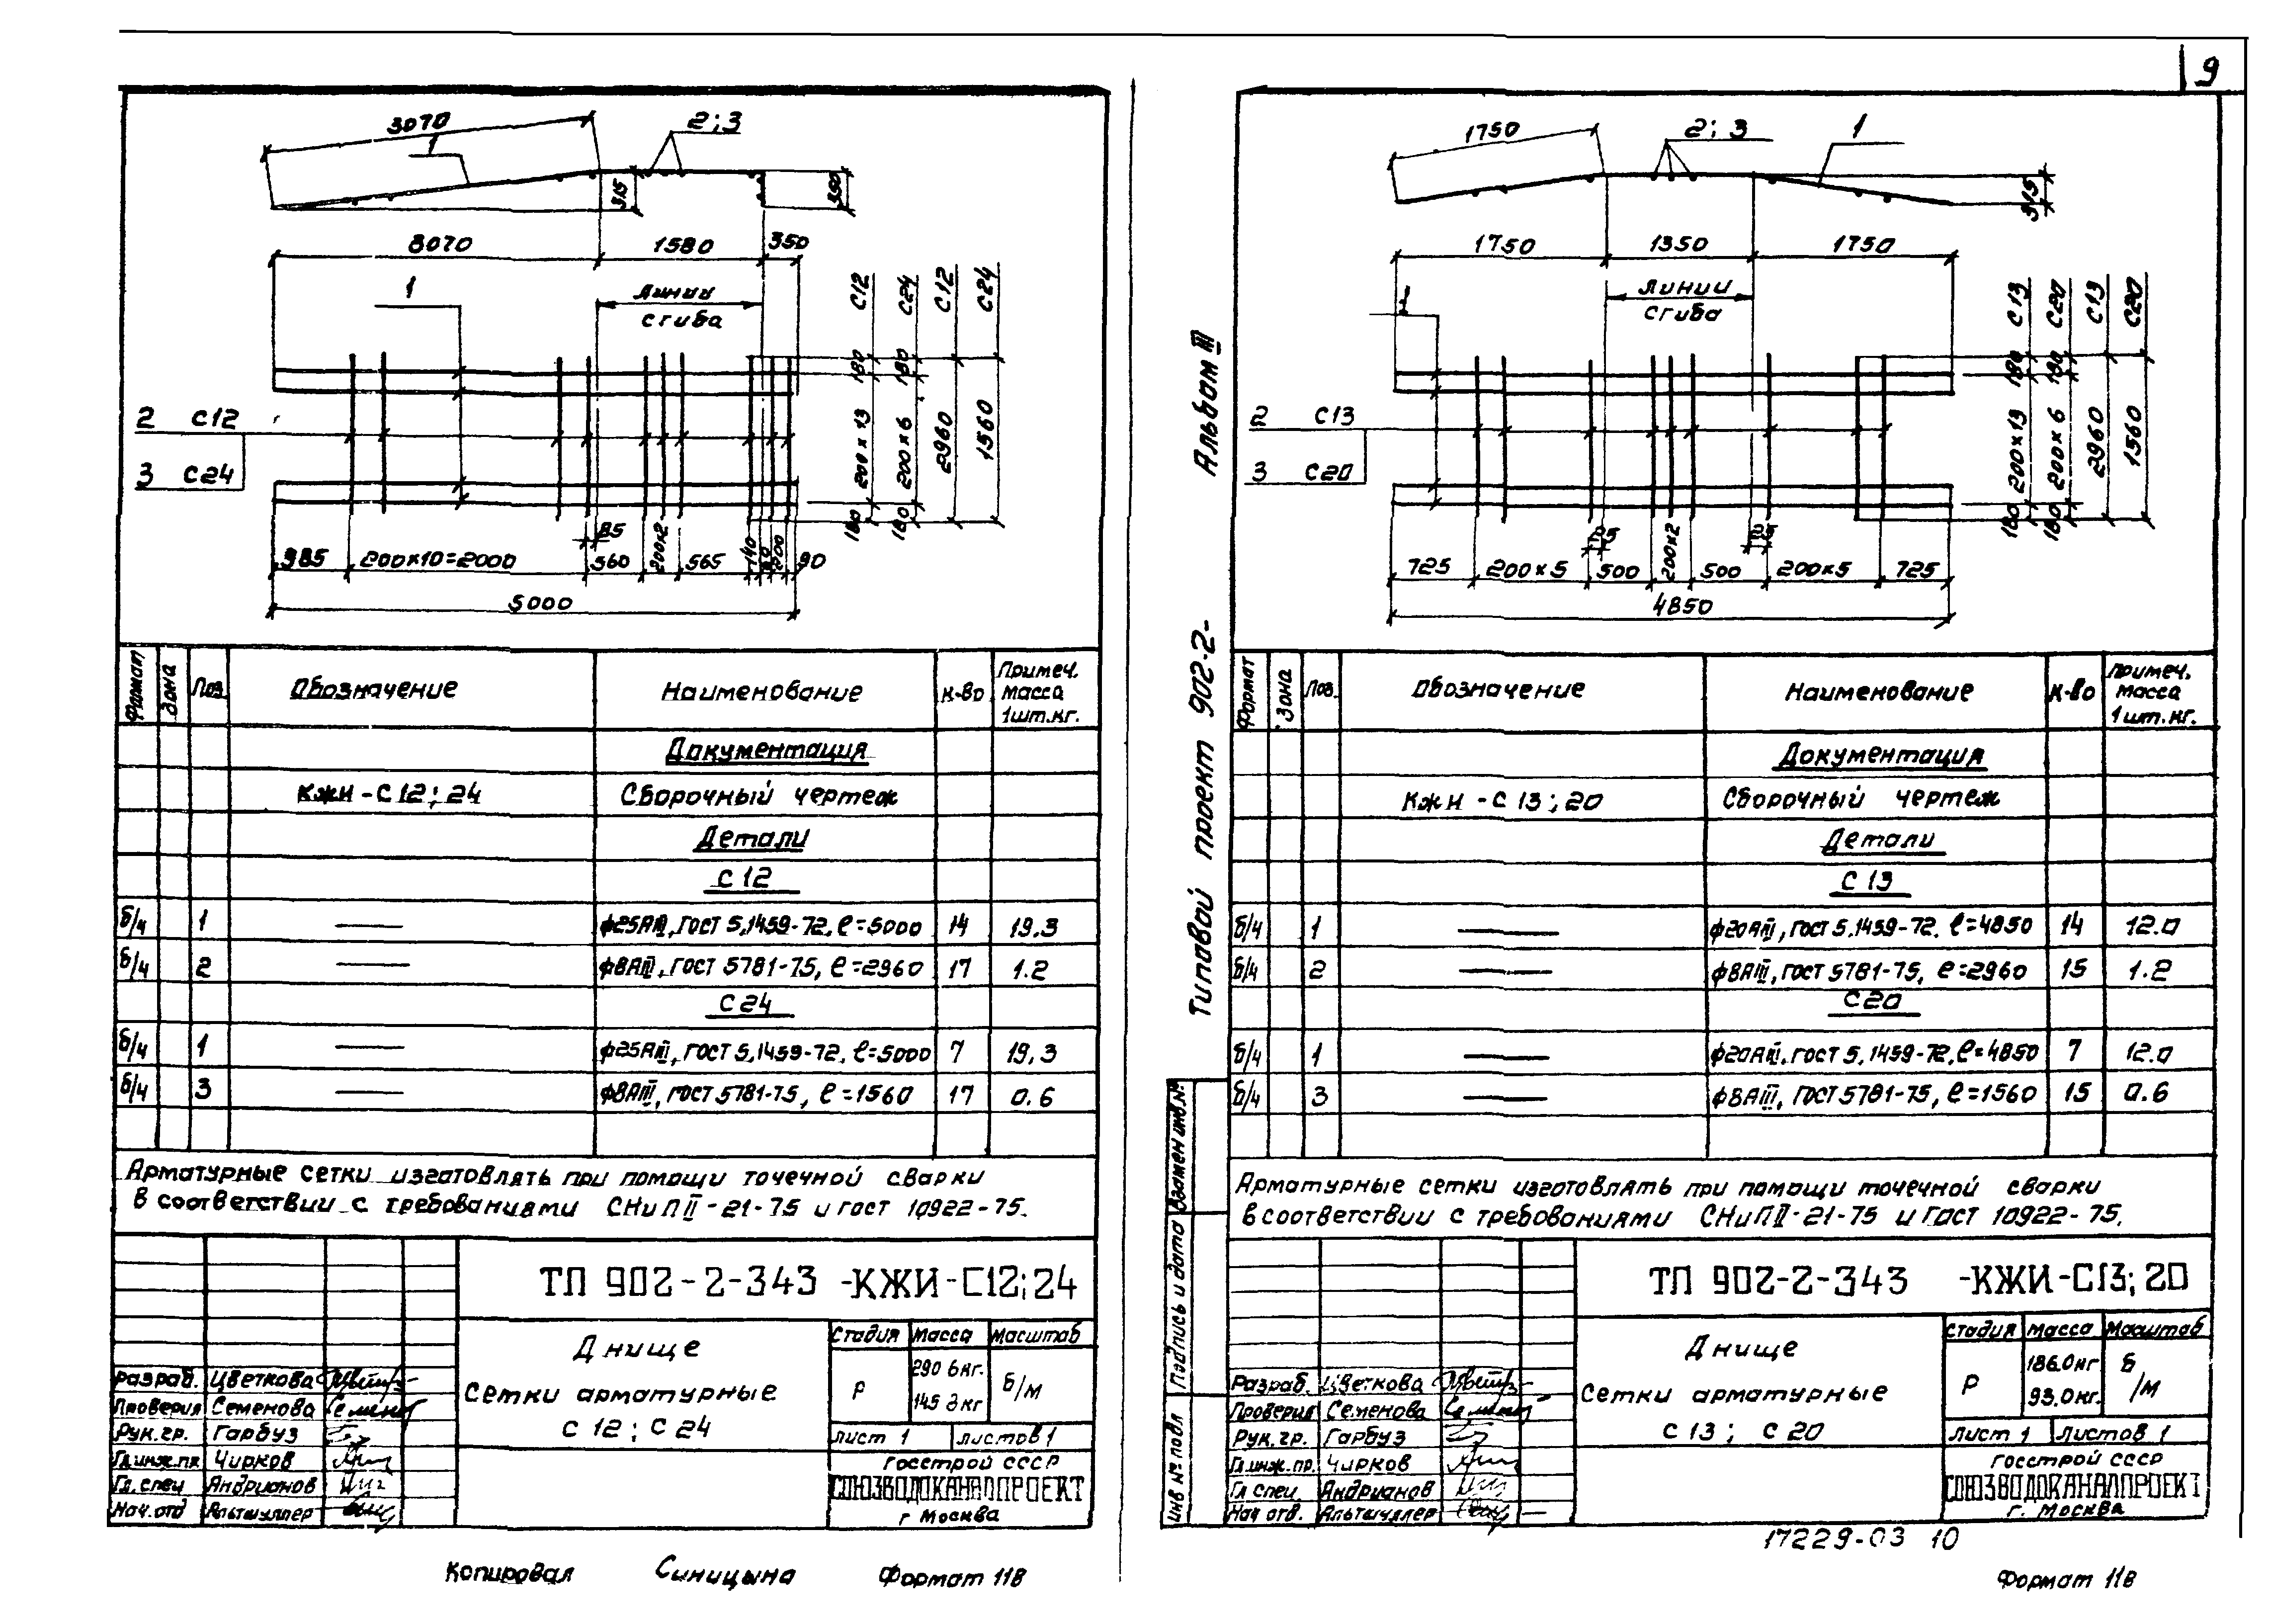 9
3070
1
2; 3
315
350
3070
1580
350
1
линии
сгиба
С12
С24
С12
С24
180
180
200×13
200×6
2960
1560
180
180
2 С12
3 С24
85
985
200×10=2000
560
200×2
565
140
200
90
5000
Формат
Зона
Поз.
Обозначение
Наименование
К-во
Примеч. масса 1шт.кг.
Документация
КЖИ-С12; 24
Сборочный чертеж
Детали
С12
б/ч 1 — ф25АIII, ГОСТ 5.1459-72, ℓ=5000 14 19.3
б/ч 2 — ф8АIII, ГОСТ 5781-75, ℓ=2960 17 1.2
С24
б/ч 1 — ф25АIII, ГОСТ 5.1459-72, ℓ=5000 7 19,3
б/ч 3 — ф8АIII, ГОСТ 5781-75, ℓ=1560 17 0.6
Арматурные сетки изготовлять при помощи точечной сварки
в соответствии с требованиями СНиП II-21-75 и гост 10922-75.
ТП 902-2-343 -КЖИ-С12;24
Днище
Сетки арматурные
С 12; С 24
Стадия Масса Масштаб
Р
290.6кг.
145.3кг
Б/м
Лист 1 Листов 1
Госстрой СССР
СОЮЗВОДОКАНАЛПРОЕКТ
г Москва
Разраб. Цветкова
Проверил Семенова
Рук.гр. Гарбуз
Гл.инж.пр Чирков
Гл.спец Андрианов
Нач.отд Альтшуллер
Копировал Синицына Формат 11в
Альбом III
Типовой проект 902-2-
1750
2; 3
1
315
1750
1350
1750
1
линии
сгиба
С13
С20
С13
С20
180
180
200×13
200×6
2960
1560
180
180
2 С13
3 С20
75
75
725
200×5
500
200×2
500
200×5
725
4850
Формат
Зона
Поз.
Обозначение
Наименование
К-во
Примеч. Масса 1шт.кг.
Документация
КЖИ-С13; 20
Сборочный чертеж
Детали
С13
б/ч 1 — ф20АIII, ГОСТ 5.1459-72. ℓ=4850 14 12.0
б/ч 2 — ф8АIII, ГОСТ 5781-75, ℓ=2960 15 1.2
С20
б/ч 1 — ф20АIII, ГОСТ 5.1459-72, ℓ=4850 7 12.0
б/ч 3 — ф8АIII, ГОСТ 5781-75, ℓ=1560 15 0.6
Арматурные сетки изготовлять при помощи точечной сварки
в соответствии с требованиями СНиП II-21-75 и Гост 10922-75.
Взамен инв.№
Подпись и дата
Инв № подл
ТП 902-2-343 -КЖИ-С13; 20
Днище
Сетки арматурные
С 13; С 20
Стадия Масса Масштаб
Р
186.0кг
93.0кг.
Б/м
Лист 1 Листов 1
Госстрой СССР
СОЮЗВОДОКАНАЛПРОЕКТ
г. Москва
Разраб. Цветкова
Проверил Семенова
Рук.гр. Гарбуз
Гл.инж.пр. Чирков
Гл спец Андрианов
Нач отд. Альтшуллер
17229-03 10
Формат 11в